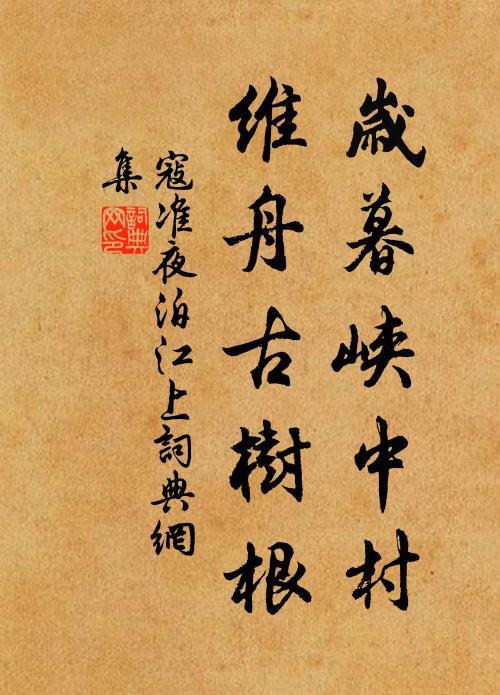 歲暮峽中村
維舟古樹根
寇准夜泊江上詞典網
集
詞典
网印